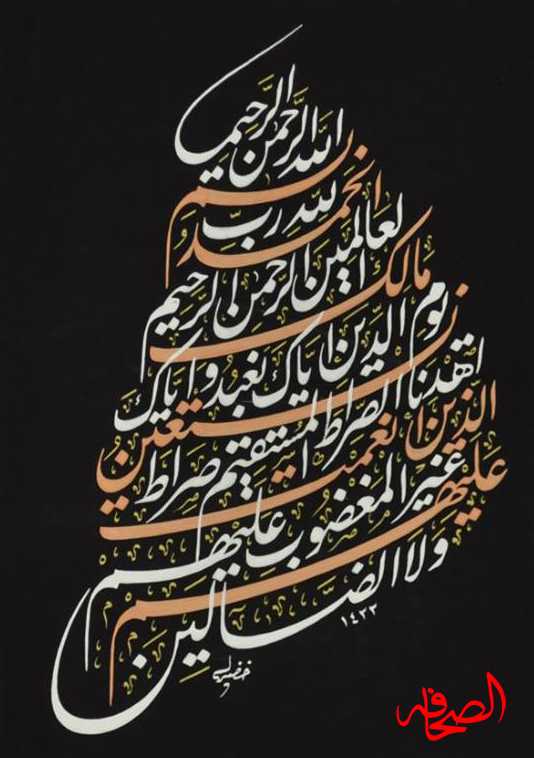 بسم الله الرحمن الرحيم
الحمد لله رب
العالمين الرحمن الرحيم
مالك يوم الدين اياك نعبد واياك
نستعين اهدنا الصراط المستقيم صراط
الذين انعمت
عليهم غير المغضوب عليهم
ولا الضالين
الصحافه